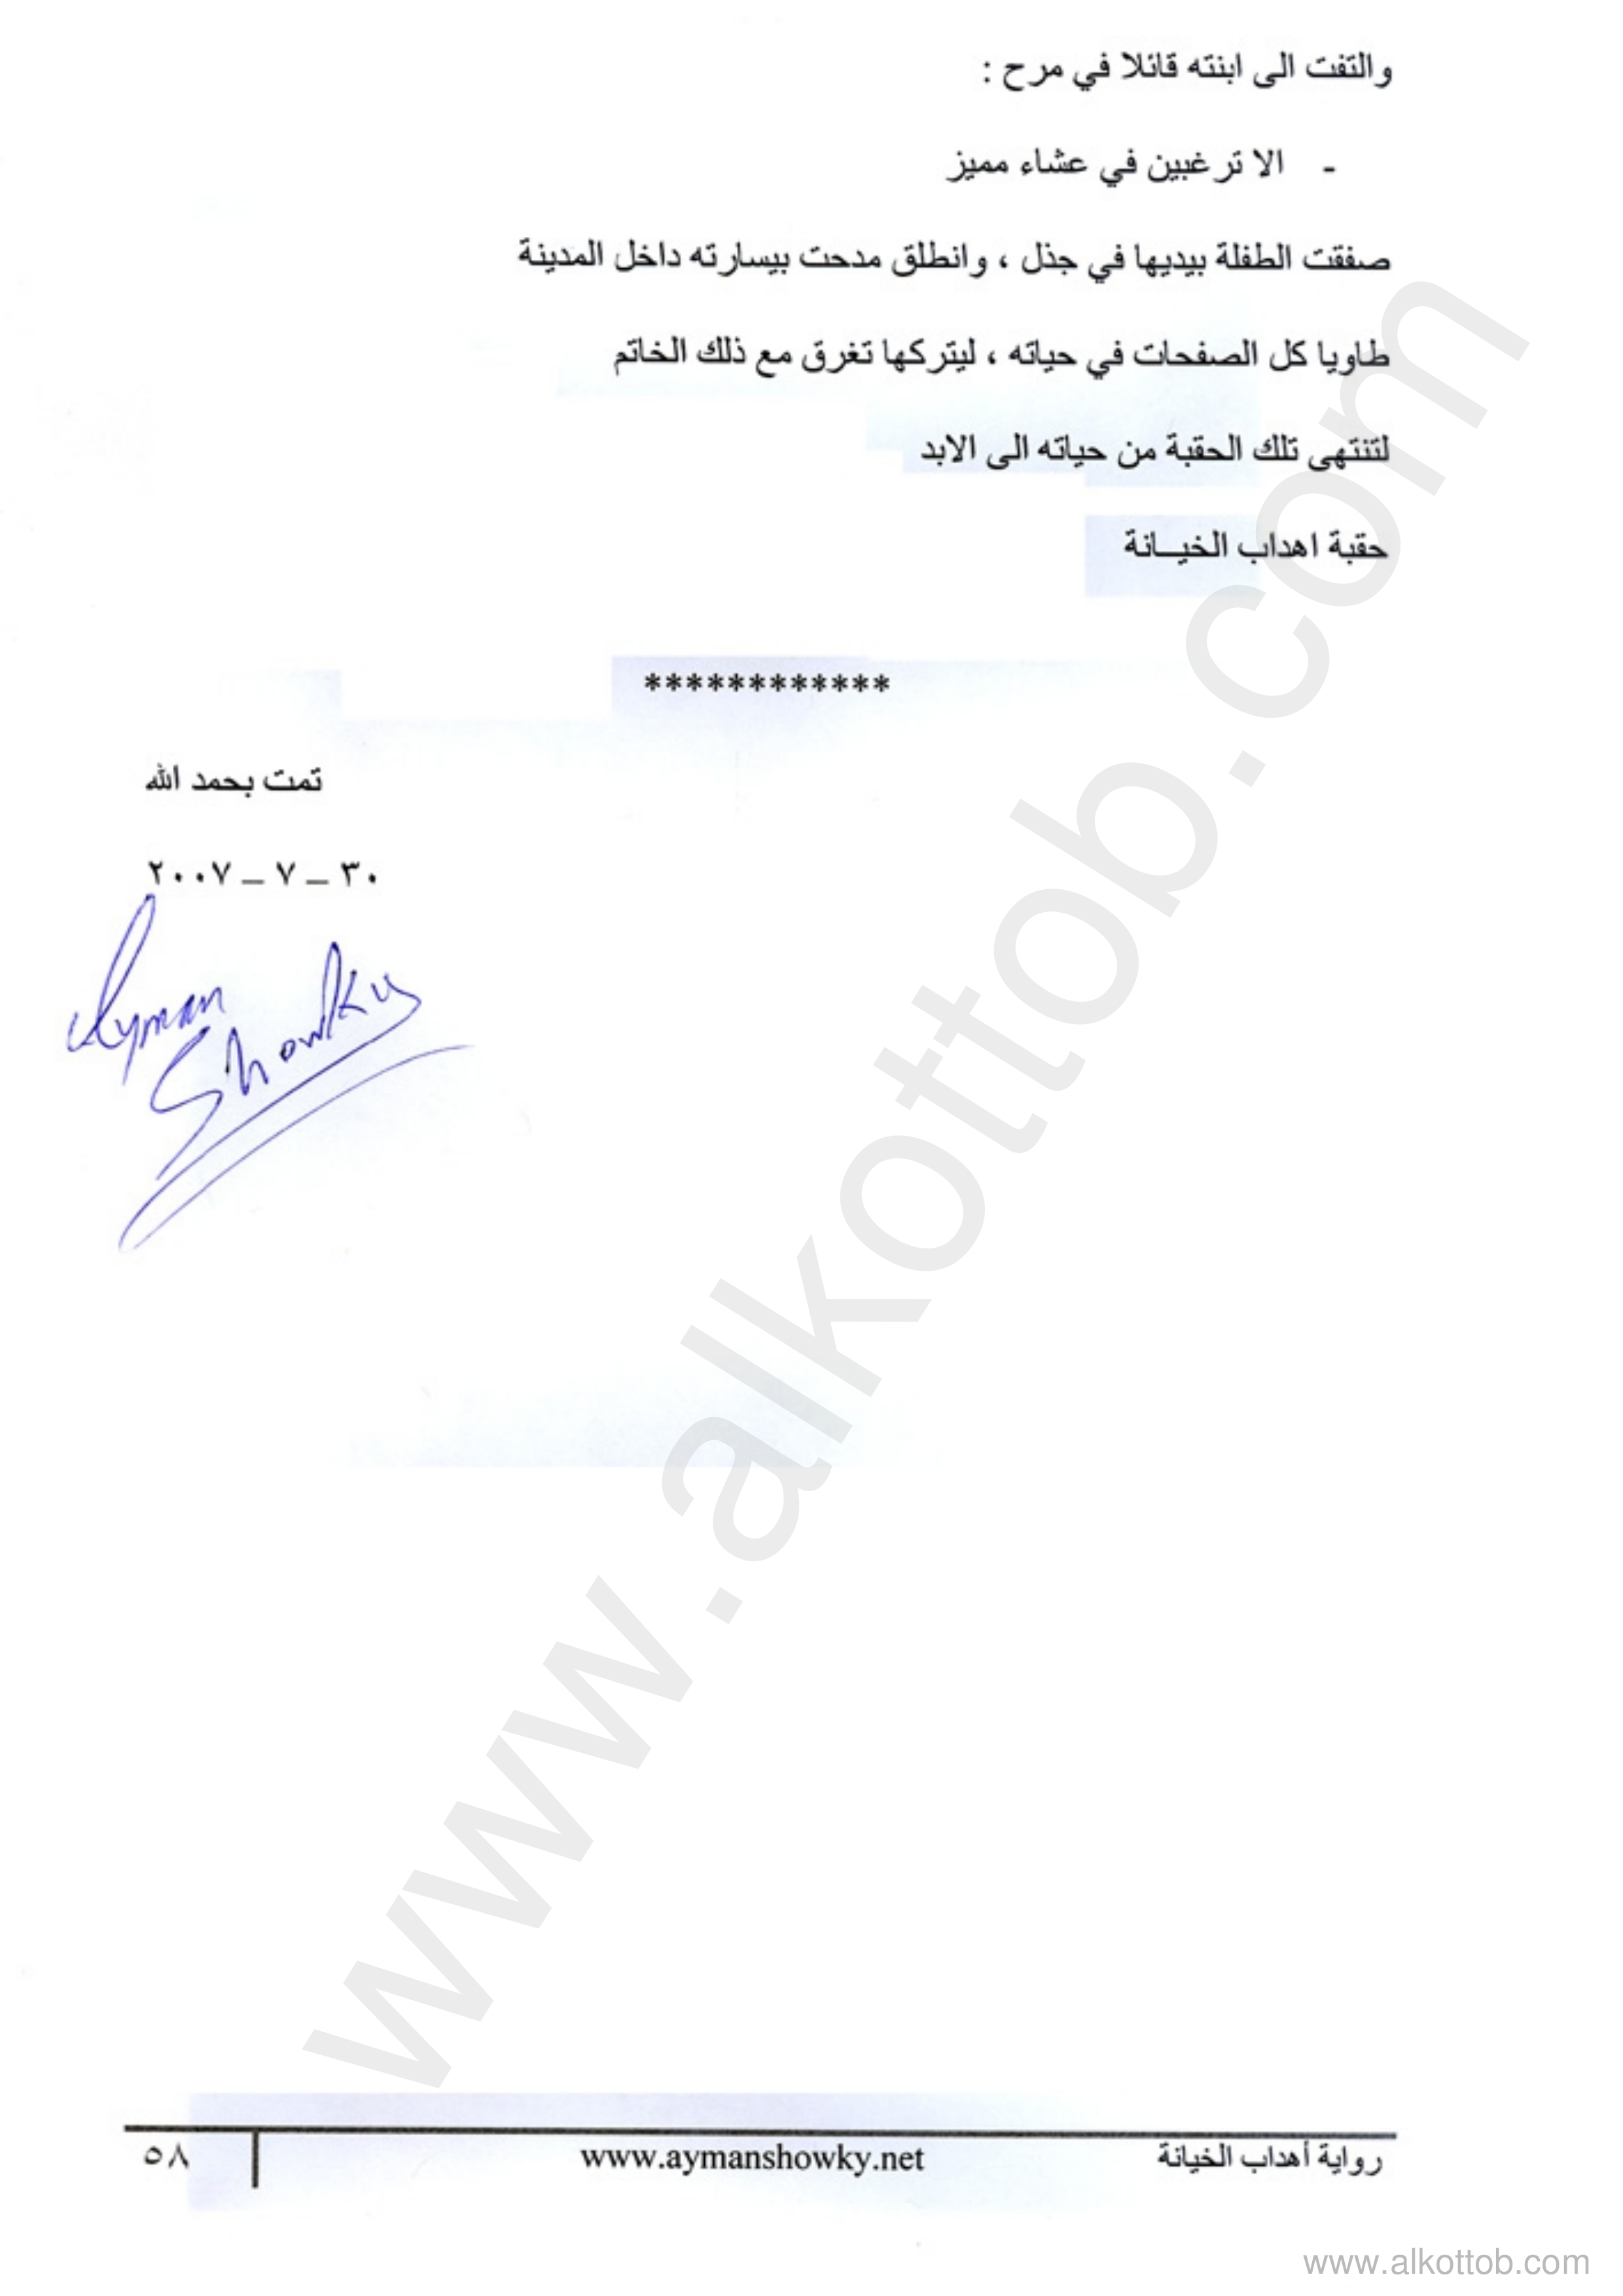 والتفت الى ابنته قائلا في مرح :
- الا ترغبين في عشاء مميز
صفقت الطفلة بيديها في جذل ، وانطلق مدحت بيسارته داخل المدينة
طاويا كل الصفحات في حياته ، ليتركها تغرق مع ذلك الخاتم
لتنتهى تلك الحقبة من حياته الى الابد
حقبة اهداب الخيـانة
************
تمت بحمد الله
٣٠ – ٧ – ٢٠٠٧
Ayman
Showky
www.alkottob.com
رواية أهداب الخيانة www.aymanshowky.net ٥٨
www.alkottob.com